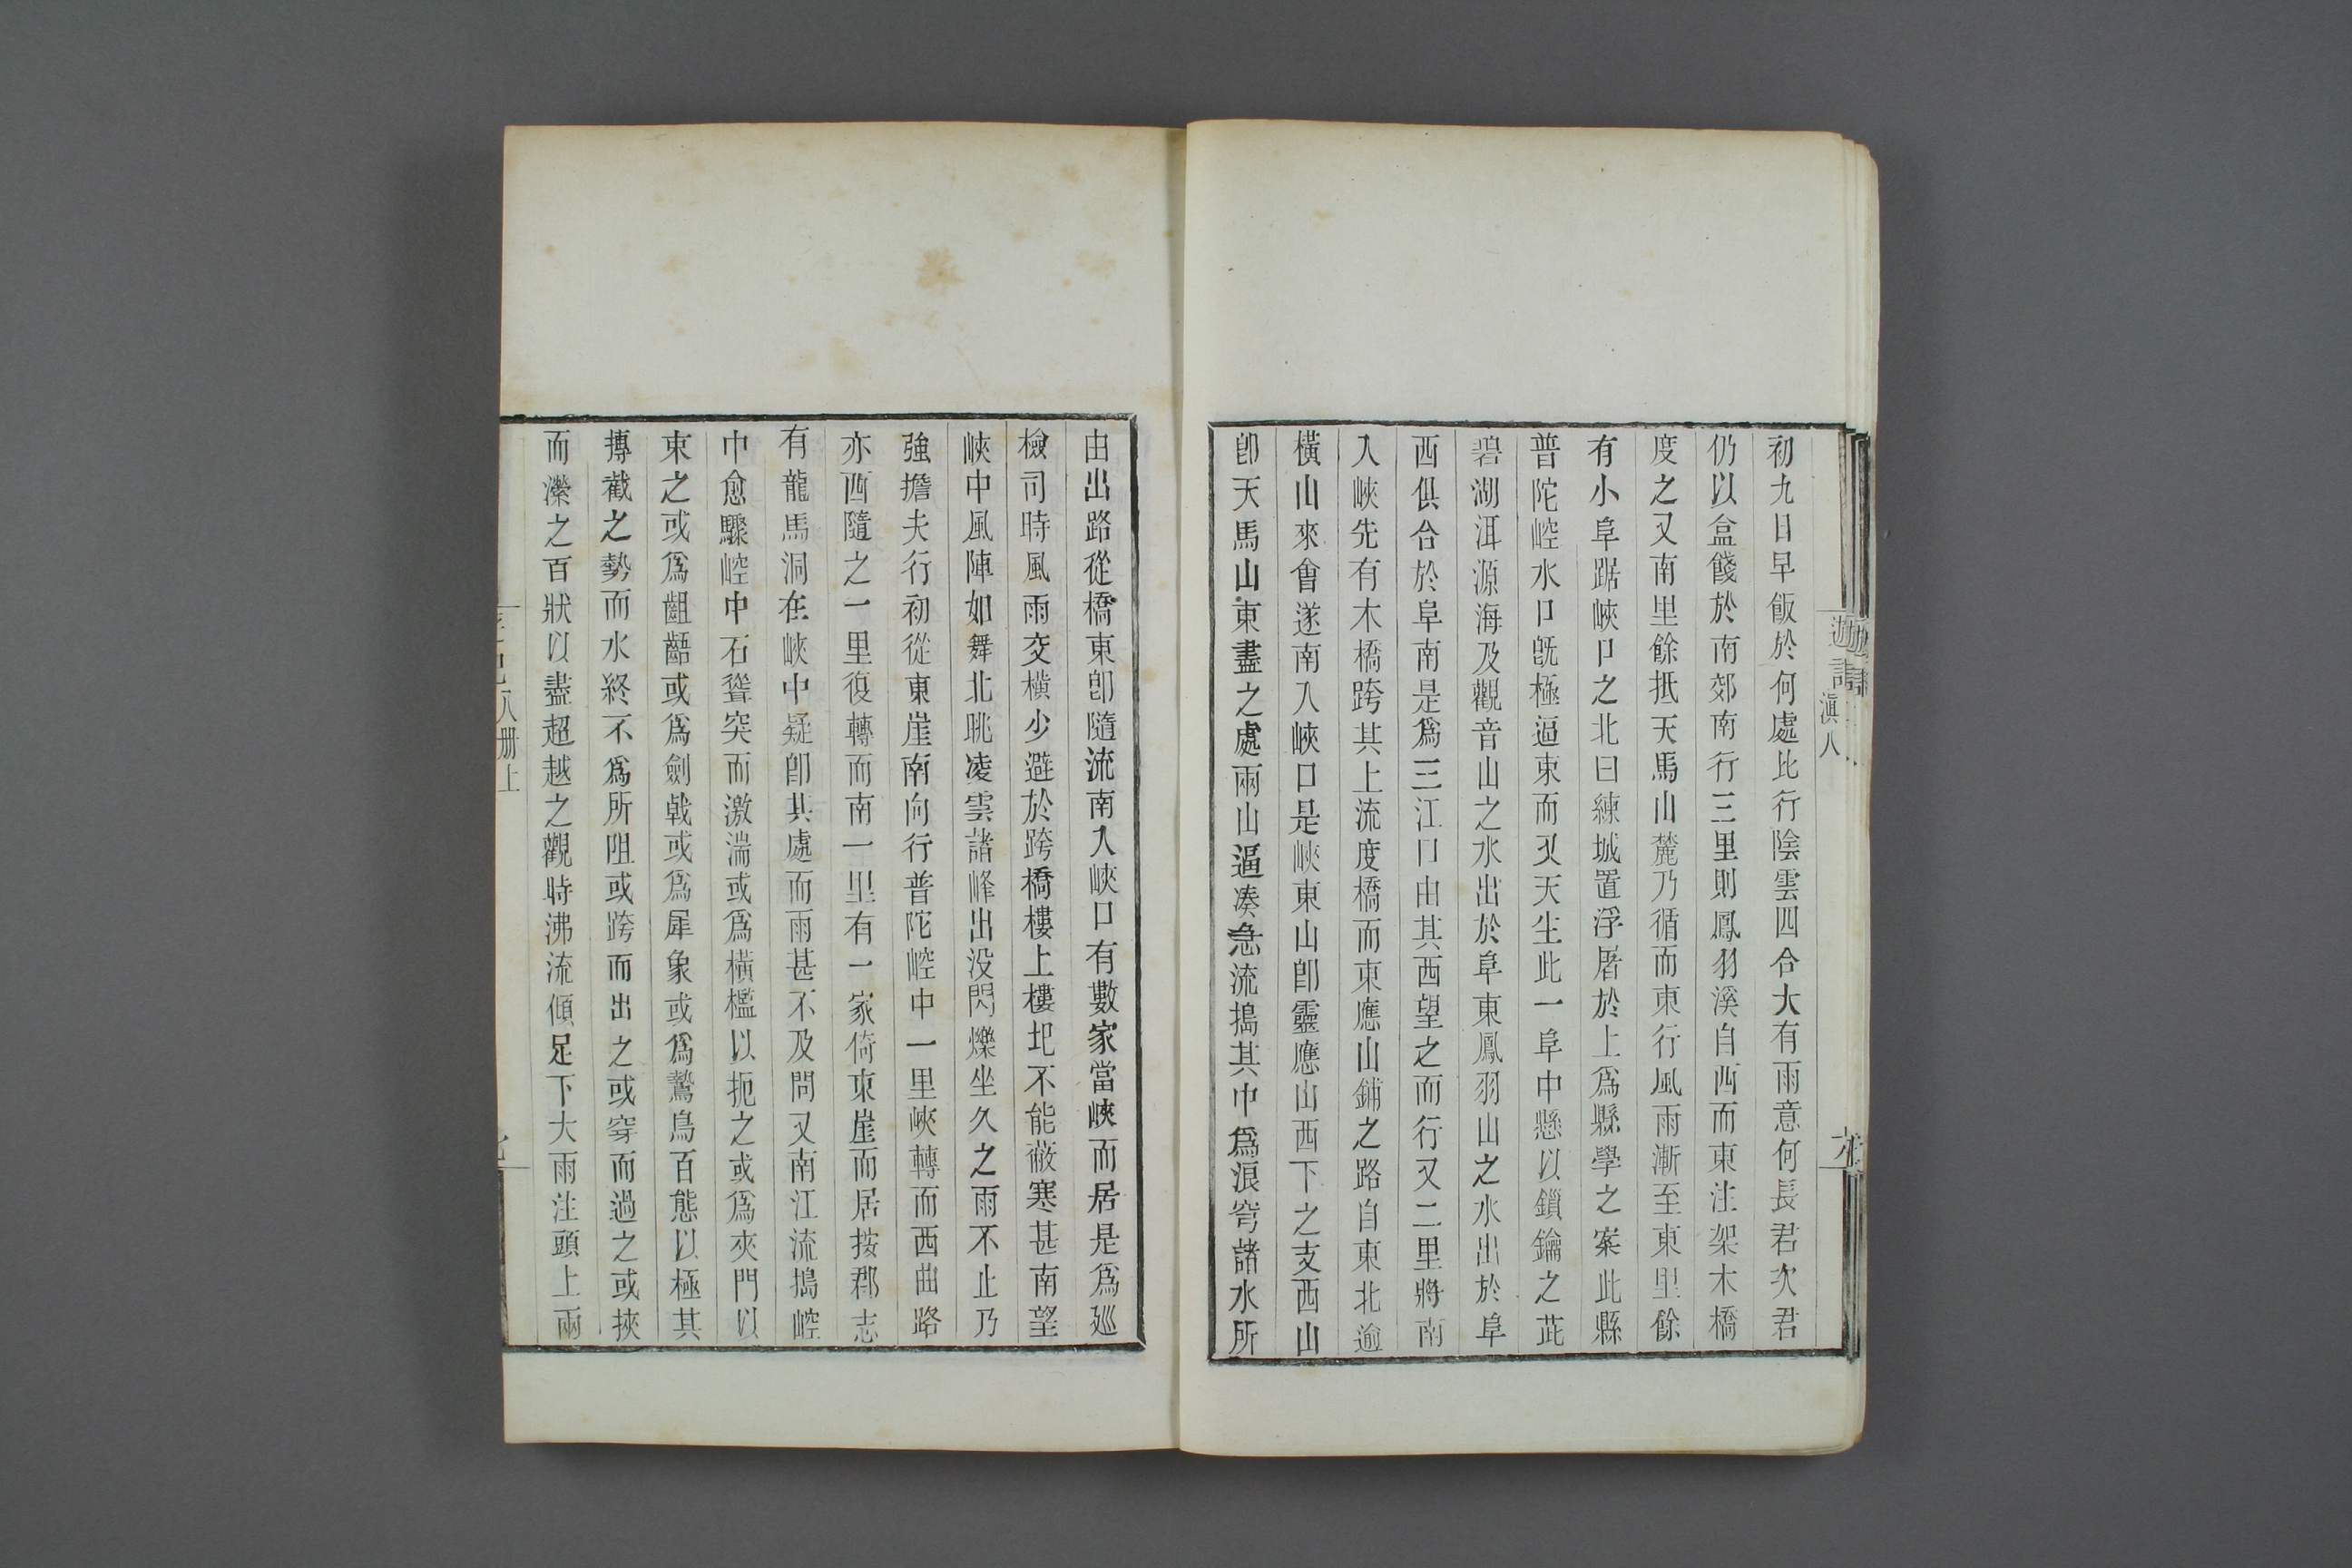 初九日早飯於何處比行陰雲四合大有雨意何長君次君
仍以盒餞於南郊南行三里則鳳羽溪自西而東注架木橋
度之又南里餘抵天馬山麓乃循而東行風雨漸至東里餘
有小阜踞峽口之北曰練城置浮屠於上爲縣學之案此縣
普陀崆水口旣極逼束而又天生此一阜中懸以鎖鑰之茈
碧湖洱源海及觀音山之水出於阜東鳳羽山之水出於阜
西俱合於阜南是爲三江口由其西望之而行又二里將南
入峽先有木橋跨其上流度橋而東應山鋪之路自東北逾
橫山來會遂南入峽口是峽東山卽靈應山西下之支西山
卽天馬山東盡之處兩山逼湊急流搗其中爲浪穹諸水所
遊記
滇八
由出路從橋東卽隨流南入峽口有數家當峽而居是爲廵
檢司時風雨交橫少避於跨橋樓上樓圯不能蔽寒甚南望
峽中風陣如舞北眺凌雲諸峰出没閃爍坐久之雨不止乃
強擔夫行初從東崖南向行普陀崆中一里峽轉而西曲路
亦西隨之一里復轉而南一里有一家倚東崖而居按郡志
有龍馬洞在峽中疑卽其處而雨甚不及問又南江流搗崆
中愈驟崆中石聳突而激湍或爲橫檻以扼之或爲夾門以
束之或爲齟齬或爲劍戟或爲犀象或爲鷙鳥百態以極其
搏截之勢而水終不爲所阻或跨而出之或穿而過之或挾
而瀠之百狀以盡超越之觀時沸流傾足下大雨注頭上兩
八册上